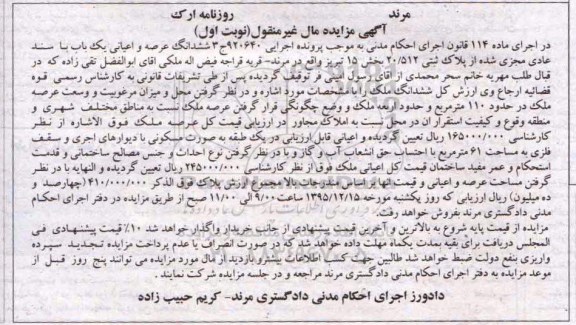 مرند روزنامه ارک
آگهی مزایده مال غیرمنقول(نوبت اول)
در اجرای ماده ۱۱۴ قانون اجرای احکام مدنی به موجب پرونده اجرایی ۹۲۰۶۴۰ح۳ششدانگ عرصه و اعیانی یک باب با سند
عادی مجزی شده از پلاک ثبتی ۲۰/۵۱۲ بخش ۱۵ تبریز واقع در مرند- قریه قراجه فیض اله ملکی آقای ابوالفضل تقی زاده که در
قبال طلب مهریه خانم سحر محمدی از آقای رسول امینی فر توقیف گردیده پس از طی تشریفات قانونی به کارشناس رسمی قوه
قضائیه ارجاع وی ارزش کل ششدانگ ملک را با مشخصات مورد اشاره و در نظر گرفتن محل و میزان مرغوبیت و وسعت عرصه
ملک در حدود ۱۱۰ مترمربع و حدود اربعه ملک و وضع چگونگی قرار گرفتن عرصه ملک نسبت به مناطق مختلف شهری و
منطقه وقوع و کیفیت استقرار آن در محل نسبت به املاک مجاور در ارزیابی قیمت کل عرصه ملک فوق الاشاره از نظر
کارشناسی ۱۶۵۰۰۰/۰۰۰ ریال تعیین گردیده و اعیانی قابل ارزیابی در یک طبقه به صورت مسکونی با دیوارهای آجری و سقف
فلزی به مساحت ۶۱مترمربع با احتساب حق انشعاب آب و گاز و با در نظر گرفتن نوع احداث و جنس مصالح ساختمانی و قدمت
استحکام و عمر مفید ساختمان قیمت کل اعیانی ملک فوق از نظر کارشناسی ۲۴۵۰۰۰/۰۰۰ ریال تعیین گردیده و النهایه با در نظر
گرفتن مساحت عرصه و اعیانی و قیمت آنها بر اساس مندرجات بالا مجموع ارزش پلاک فوق الذکر ۴۱۰/۰۰۰/۰۰۰ (چهارصد و
ده میلیون) ریال ارزیابی که روز یکشنبه مورخه ۱۳۹۵/۱۲/۱۵ ساعت۹/۰۰ الی ۱۱/۰۰ صبح از طریق مزایده در دفتر اجرای احکام
مدنی دادگستری مرند بفروش خواهد رفت.
مزایده از قیمت پایه شروع به بالاترین و آخرین قیمت پیشنهادی از جانب خریدار واگذار خواهد شد ۱۰٪ قیمت پیشنهادی فی
المجلس دریافت برای بقیه بمدت یکماه مهلت داده خواهد شد که در صورت انصراف یا عدم پرداخت مزایده تجدید سپرده
واریزی بنفع دولت ضبط خواهد شد طالبین جهت کسب اطلاعات بیشتر و بازدید از مال مورد مزایده می توانند پنج روز قبل از
موعد مزایده به دفتر اجرای احکام مدنی دادگستری مرند مراجعه و در جلسه مزایده شرکت نمایند.
دادورز اجرای احکام مدنی دادگستری مرند- کریم حبیب زاده